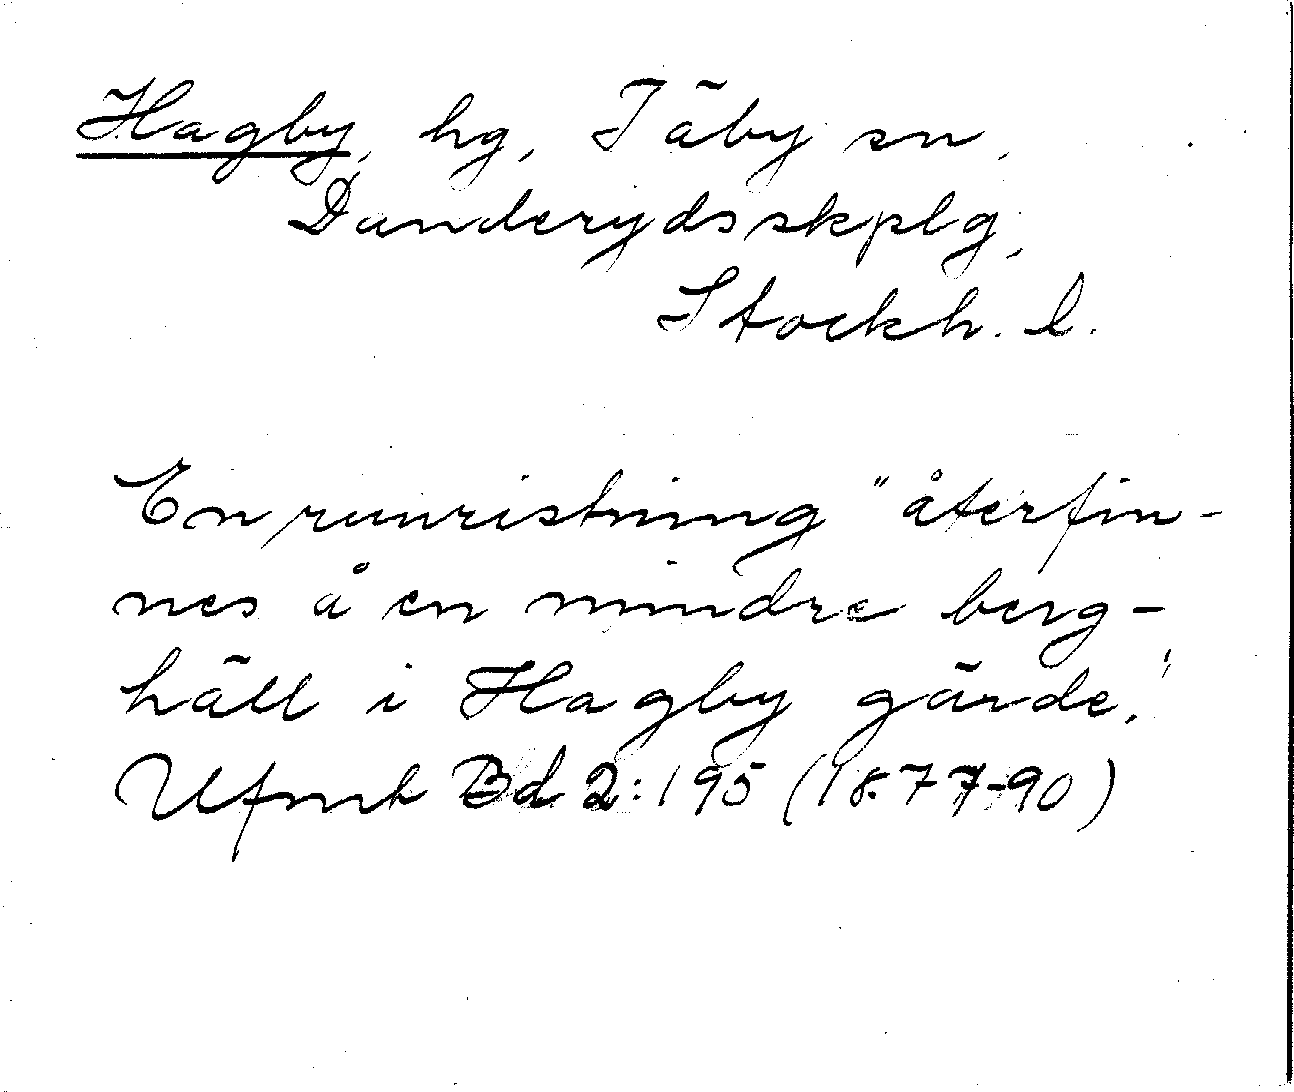 Hagby, hg, Täby sn,
Danderyds skplg,
Stockh. l.
En runristning "återfin-
nes å en mindre berg-
häll i Hagby gärde."
Ufmt Bd 2:195 (1877-90)